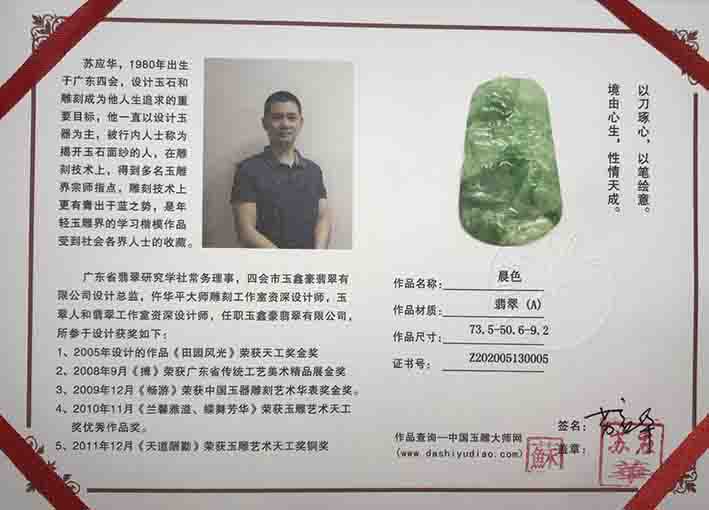 苏应华，1980年出生
于广东四会，设计玉石和
雕刻成为他人生追求的重
要目标，他一直以设计玉
器为主，被行内人士称为
揭开玉石面纱的人，在雕
刻技术上，得到多名玉雕
界宗师指点，雕刻技术上
更有青出于蓝之势，是年
轻玉雕界的学习楷模作品
受到社会各界人士的收藏。
广东省翡翠研究学社常务理事，四会市玉鑫豪翡翠有
限公司设计总监，仵华平大师雕刻工作室资深设计师，玉
翠人和翡翠工作室资深设计师，任职玉鑫豪翡翠有限公司，
所参于设计获奖如下：
1、2005年设计的作品《田园风光》荣获天工奖金奖
2、2008年9月《搏》荣获广东省传统工艺美术精品展金奖
3、2009年12月《畅游》荣获中国玉器雕刻艺术华表奖金奖。
4、2010年11月《兰馨雅溢、蝶舞芳华》荣获玉雕艺术天工
奖优秀作品奖。
5、2011年12月《天道酬勤》荣获玉雕艺术天工奖铜奖
以刀琢心，以笔绘意。
境由心生，性情天成。
作品名称：晨色
作品材质：翡翠（A）
作品尺寸：73.5-50.6-9.2
证书号：Z202005130005
作品查询—中国玉雕大师网
(www.dashiyudiao.com)
蘇
签名：苏应华
盖章：